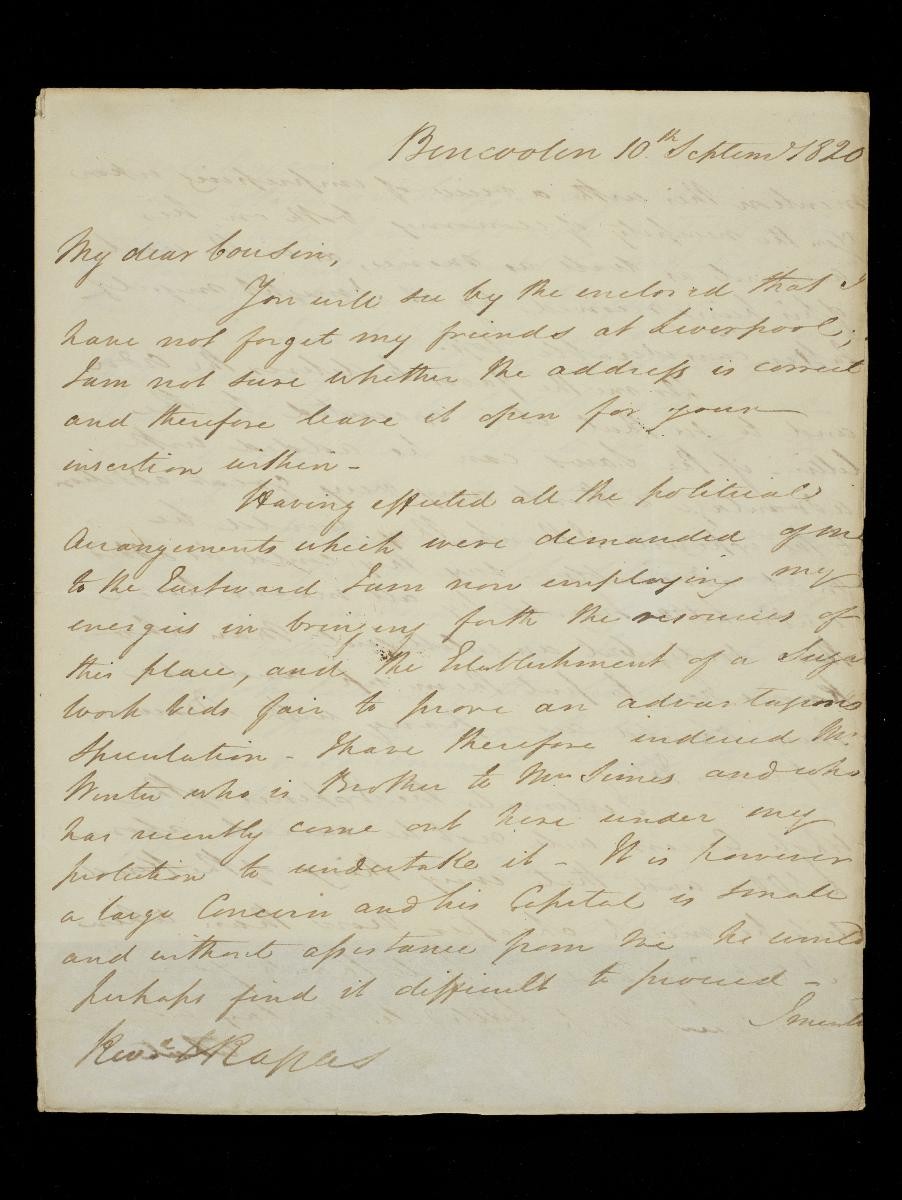 Bencoolen 10th Septemr 1820
My dear Cousin,
You will see by the enclosed that I
have not forget my friends at Liverpool;
I am not sure whether the address is correct
and therefore leave it open for your
insertion within -
Having effected all the political
Arrangements which were demanded of me
to the Eastward I am now employing my
energies in bringing forth the resources of
this place, and the Establishment of a Sugar
work bids fair to prove an advantageous
Speculation - I have therefore induced Mr
Winter who is Brother to Mrs Simes and who
has recently come out here under my
protection to undertake it - It is however
a large Concern and his Capital is small
and without assistance from me he would
perhaps find it difficult to proceed -
I mention
Revd Raffles